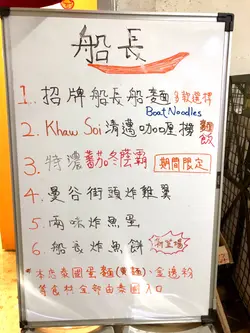 船長
1. 招牌船長船麵 多款選擇
Boat Noodles
2. Khaw Soi 清邁咖喱撈麵飯
3. 特濃蕃茄冬蔭霸 期間限定
4. 曼谷街頭炸雞翼
5. 兩味炸魚蛋
6. 船長炸魚餅 新登場
*本店泰國蛋麵(黃麵)、金邊粉
等食材全部由泰國入口